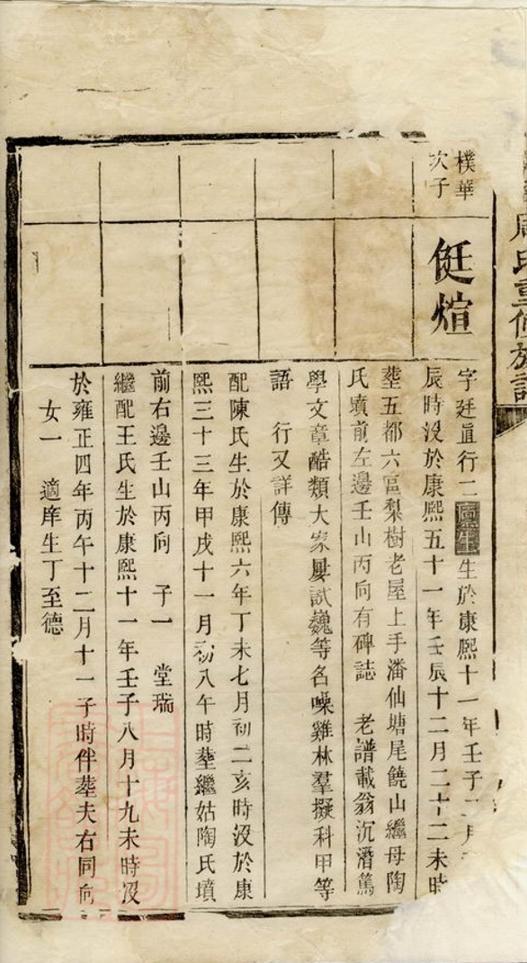 周氏重修族譜
樸華
次子
侹煊
字廷直行二國學生生於康熙十一年壬子
辰時沒於康熙五十一年壬辰十二月二十二未時
塟五都六區梨樹老屋上手潘仙塘尾饒山繼母陶
氏墳前左邊壬山丙向有碑誌 老譜載翁沉潛篤
學文章酷類大家屢試巍等名噪雞林羣擬科甲等
語 行又詳傳
配陳氏生於康熙六年丁未七月初二亥時沒於康
熙三十三年甲戌十一月初八午時塟繼姑陶氏墳
前右邊壬山丙向 子一 堂瑞
繼配王氏生於康熙十一年壬子八月十九未時沒
於雍正四年丙午十二月十一子時伴塟夫右同向
女一 適庠生丁至德